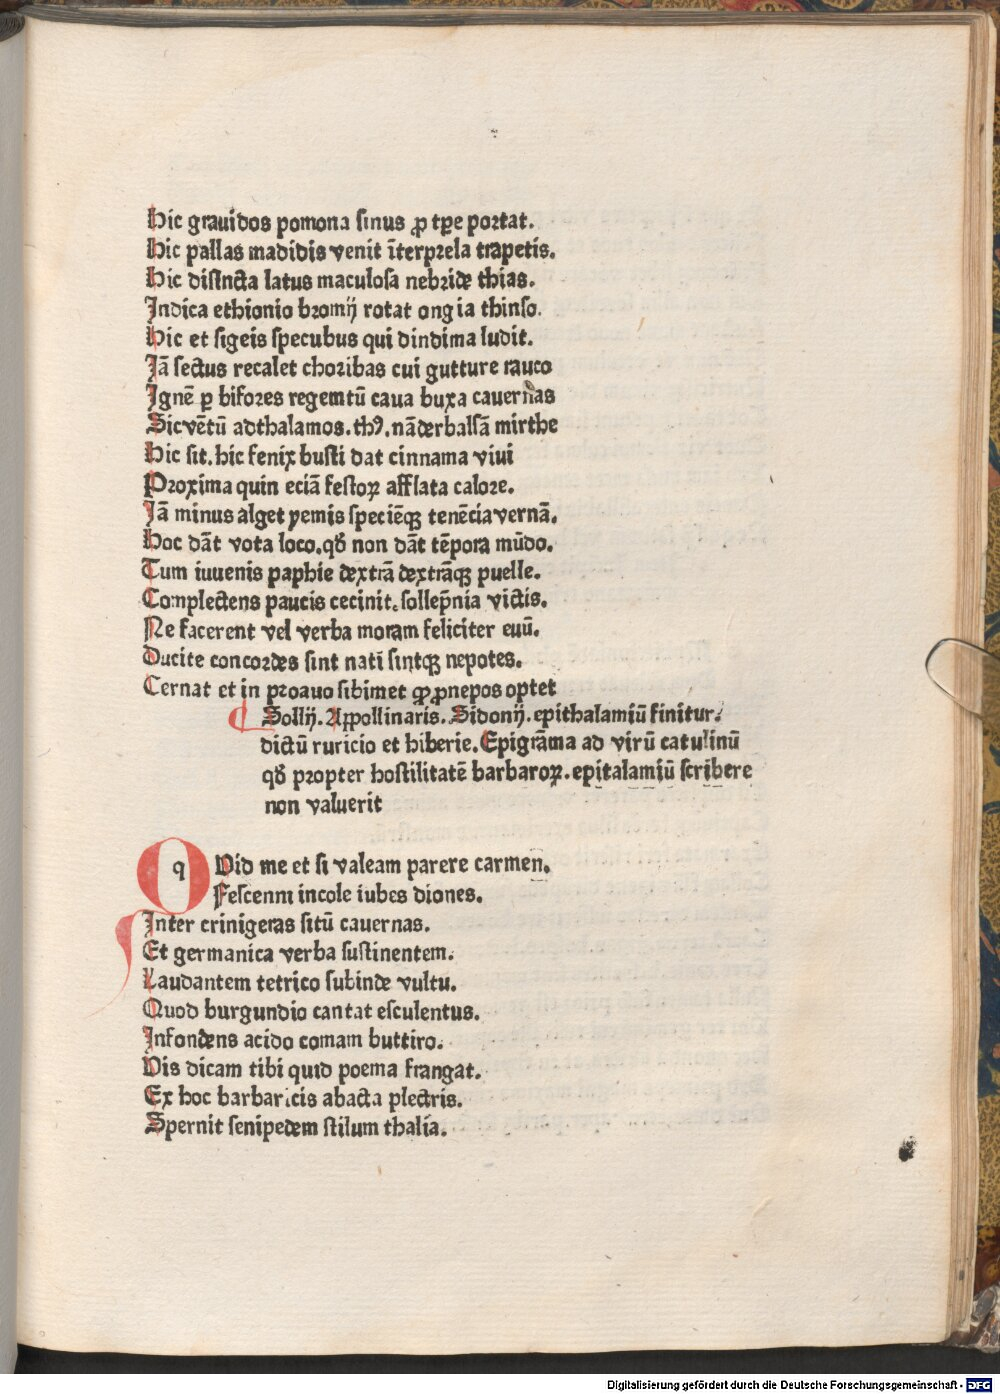 Hic grauidos pomona sinus ꝓ tꝑe portat.
Hic pallas madidis venit īterprela trapetis.
Hic distncta latus maculosa nebride thias.
Indica ethionio bromij rotat ongia thinso.
Hic et sigeis specubus qui dindima ludit.
Jā sectus recalet choribas cui gutture rauco
Ignē ꝑ bifores regemtū caua buxa cauernas
Sic vētū adthalamos. thꝰ. nāderbalsā mirthe
Hic sit. hic fenix busti dat cinnama viui
Proxima quin eciā festoꝝ afflata calore.
Jā minus alget yemis speciēqꝫ tenēcia vernā.
Hoc dāt vota loco. qđ non dāt tēpora mūdo.
Tum iuuenis paphie dextrā dextrāqꝫ puelle.
Complectens paucis cecinit. sollep̄nia victis.
Ne facerent vel verba moram feliciter euū.
Ducite concordes sint nati sintqꝫ nepotes.
Cernat et in proauo sibimet ꝙ ꝓnepos optet
Sollij. Appollinaris. Sidonij. epithalamiū finitur.
dictū ruricio et hiberie. Epigrāma ad virū catulinū
qđ propter hostilitatē barbaroꝝ. epitalamiū scribere
non valuerit
q Vid me et si valeam parere carmen.
Fescenni incole iubes diones.
Inter crinigeras sitū cauernas.
Et germanica verba sustinentem.
Laudantem tetrico subinde vultu.
Quod burgundio cantat esculentus.
Infondens acido comam buttiro.
Vis dicam tibi quid poema frangat.
Ex hoc barbaricis abacta plectris.
Spernit senipedem stilum thalia.
Digitalisierung gefördert durch die Deutsche Forschungsgemeinschaft - DFG